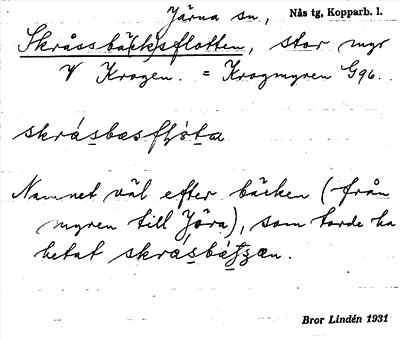 Järna sn, Nås tg, Kopparb. l.
Skråssbä(c)ksflotten, stor myr
V Krogen. = Krogmyren G96.
skråsbæsfḷọ́ta
Namnet väl efter bäcken (från
myren till Jöra), som torde ha
hetat skråsbäʦ̌æn.
Bror Lindén 1931